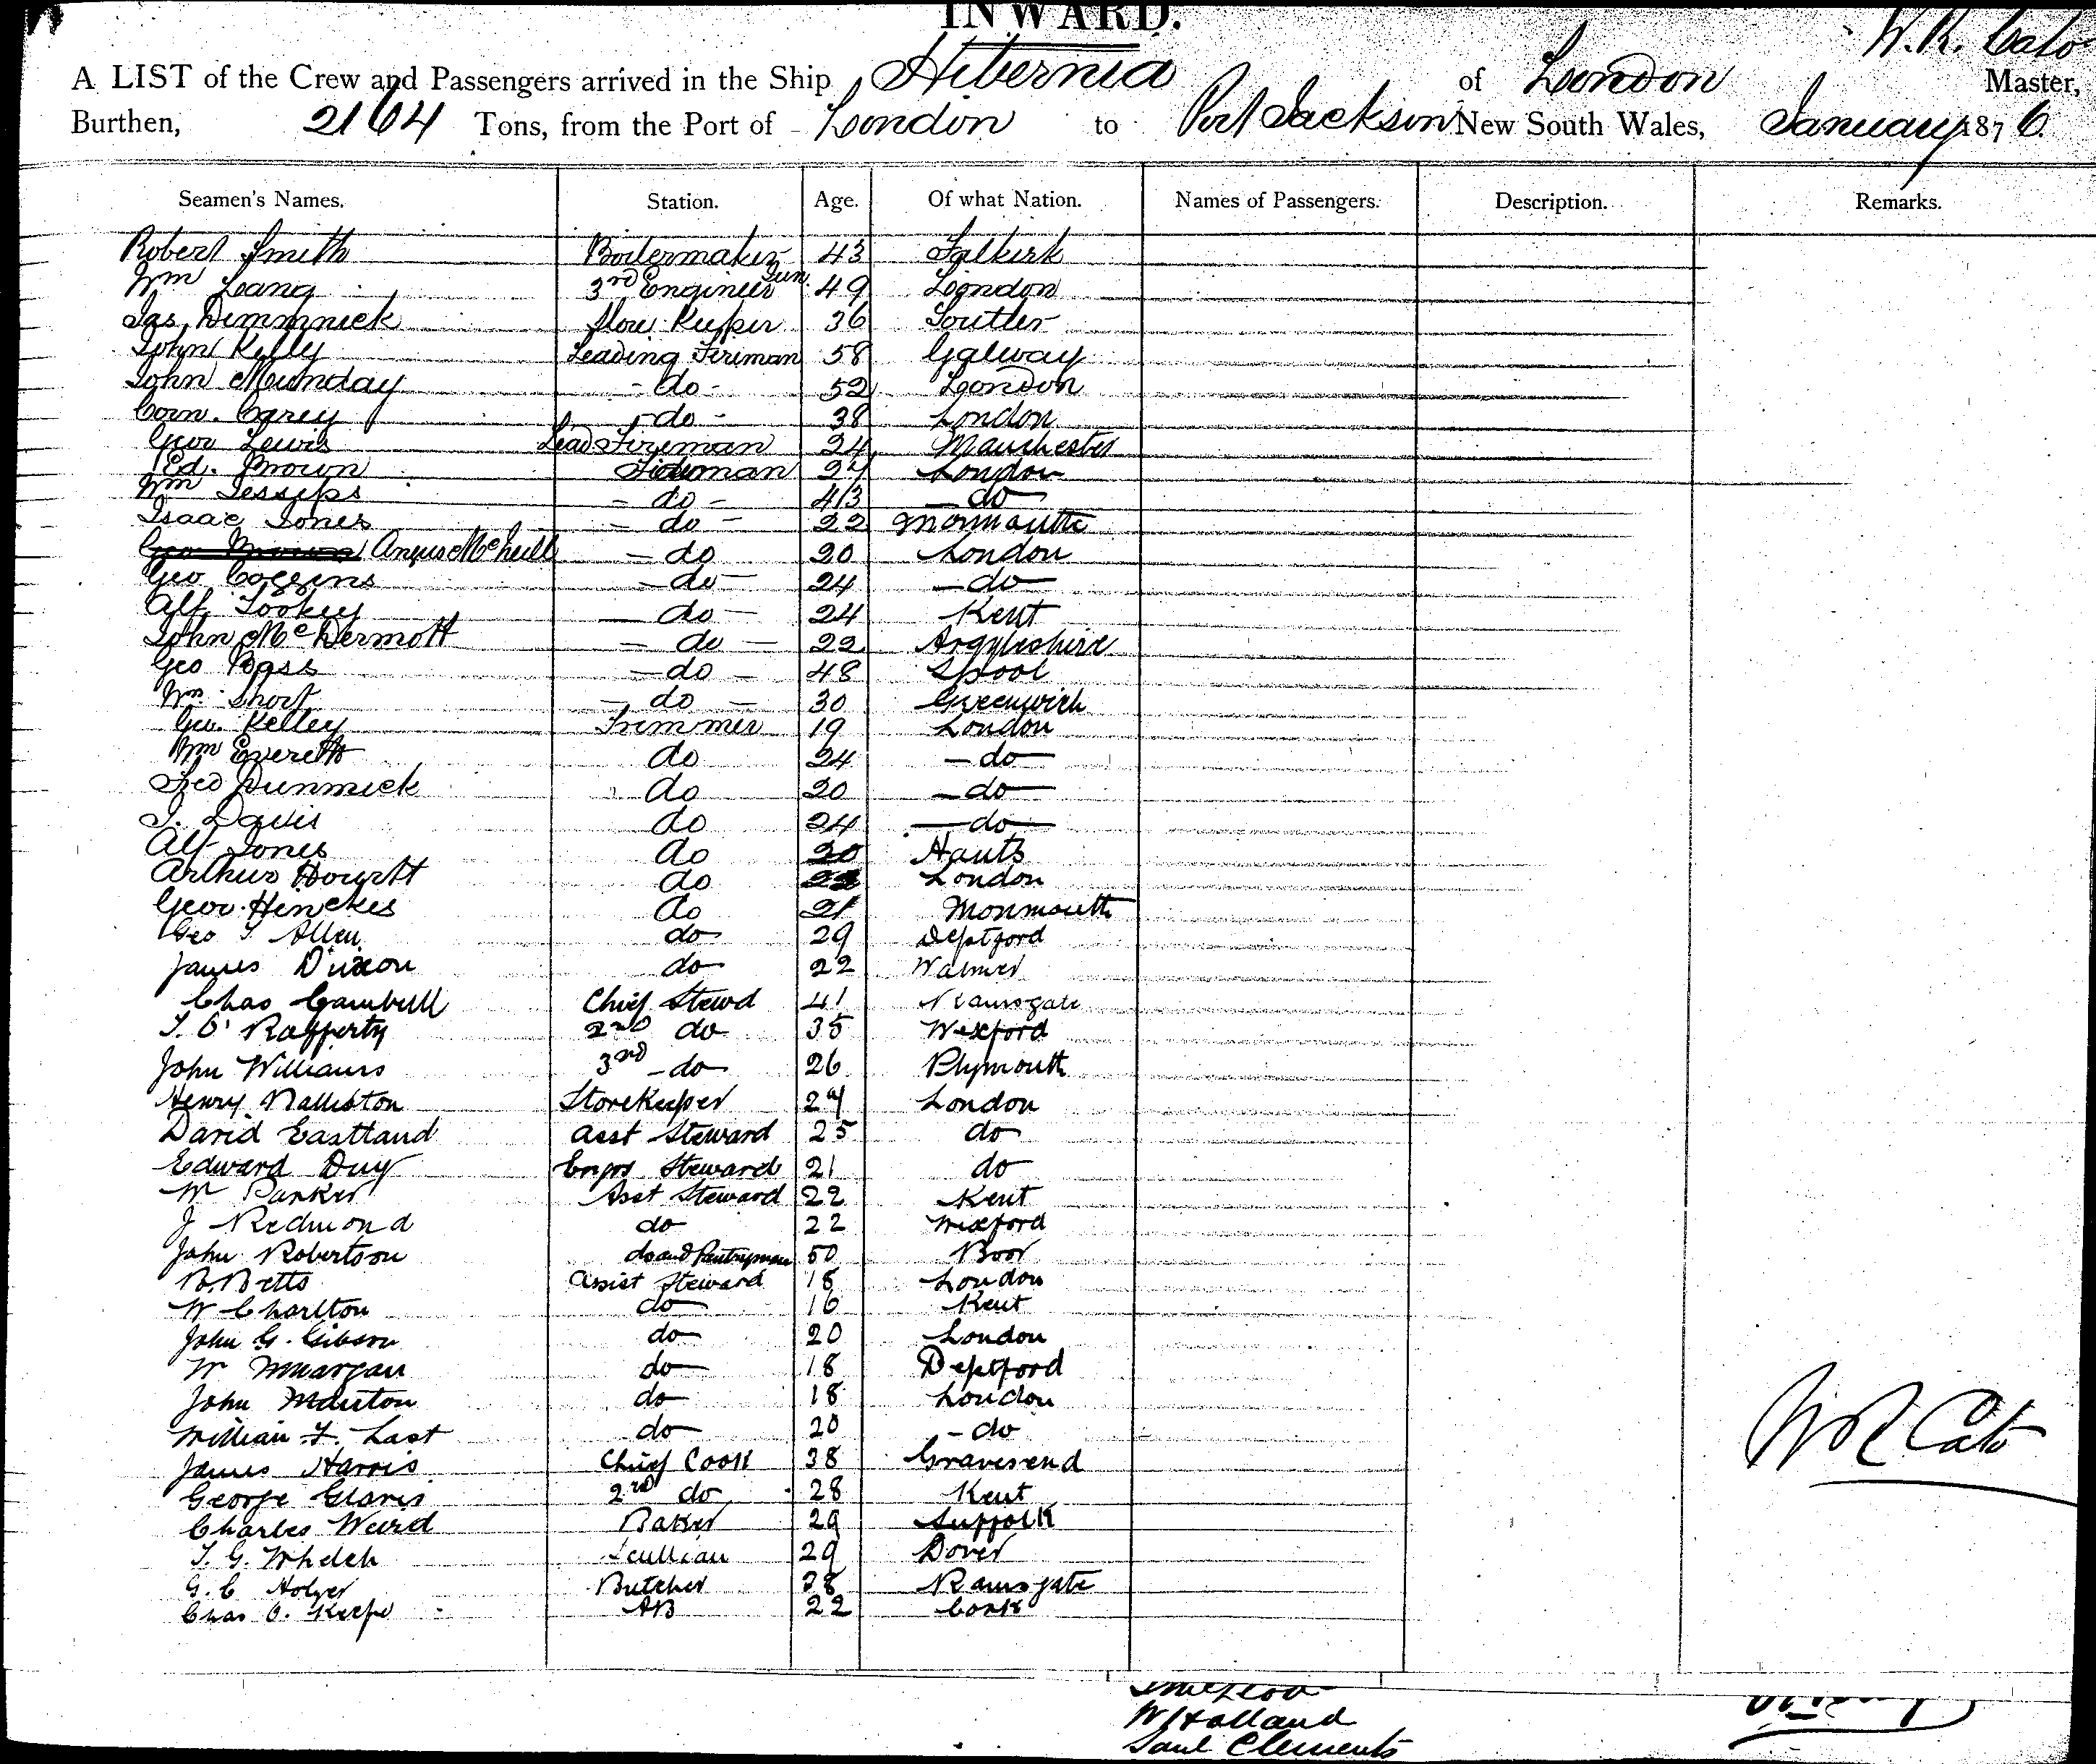 INWARD.
W. R. Cato
A LIST of the Crew and Passengers arrived in the Ship Hibernia of London Master,
Burthen, 2164 Tons, from the Port of London to Port Jackson New South Wales, January 1876.
Seamen's Names. Station. Age. Of what Nation. Names of Passengers. Description. Remarks.
Robert Smith Boilermaker 43 Falkirk
Wm Laang 3rd Engineer Jun. 49 London
Jas Dimmnick Store Keeper 36
John Kelly Leading Fireman 58 Galway
John Munday - do - 52 London
Corn. Carey - do - 38 London
Geor Lewis Lead Fireman 24 Manchester
Ed. Brown Fireman 24 London
Wm Jessips - do - 43 do
Isaac Jones - do - 22 Monmouth
Geo Brown Angus McNeill - do 20 London
Geo Coggins - do - 24 - do -
Alf Tookey do - 24 Kent
John McDermott - do - 22 Argyleshire
Geo Bass - do - 48 Lpool
Wm Short - do - 30 Greenwich
Geo. Kelley Trimmer 19 London
Wm Everett do 24 - do -
Fred Dunmick do 20 - do -
J. Davis do 24 - do -
Alf Jones do 20 Hants
Arthur Howett do London
Geor. Hinckes do 21 Monmouth
Geo T Allen do 29 Deptford
James Dixon do 22 Walmer
Chas Cambell Chief Stewd 41 Ramsgate
T. O' Rafferty 2nd do 35 Wexford
John Williams 3rd do 26 Plymouth
Henry Balliston Storekeeper 24 London
David Eastland Asst Steward 25 do
Edward Duy Engrs Steward 21 do
W Parker Asst Steward 22 Kent
J Redmond do 22 Wexford
John Robertson do and Pantryman 50
B. Betts Assist Steward 18 London
W Charlton do 16 Kent
John G. Gibson do 20 London
W Morgan do 18 Deptford
John Manton do 18 London
William F. Last do 20 - do
James Harris Chief Cook 38 Gravesend
George Glaves 2nd do 28 Kent
Charles Weird Baker 29 Suffolk
T. G. Whelch Scullian 29 Dover
G. C Holyer Butcher 28 Ramsgate
Chas O. Keefe AB 22 Cork
W R Cato
W Holland
Saul Clements